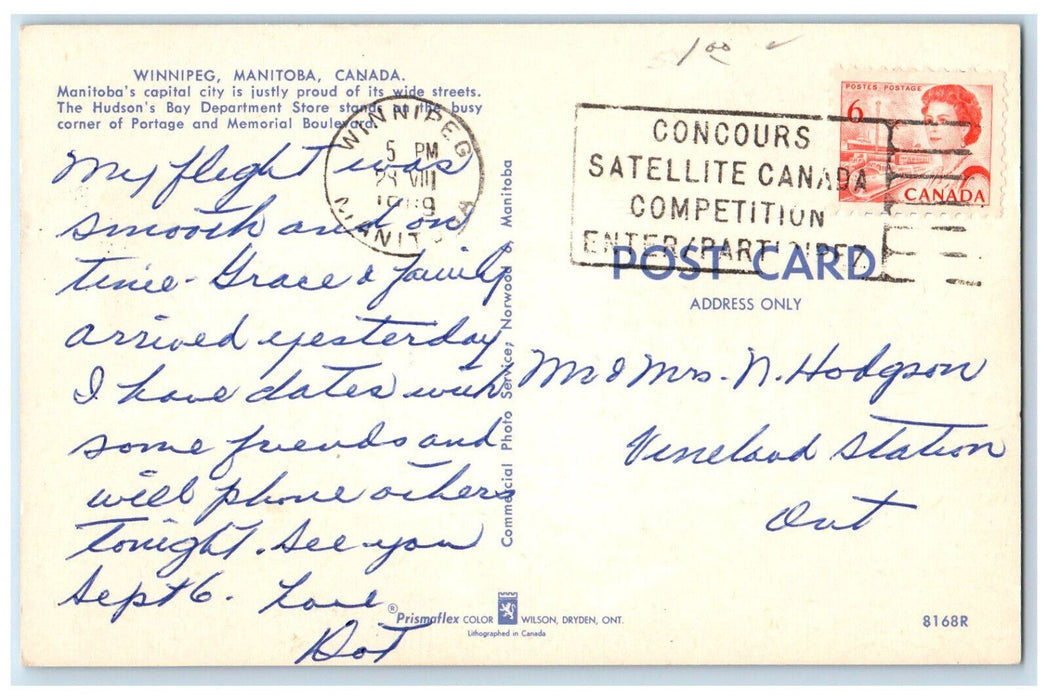 1.00
WINNIPEG, MANITOBA, CANADA.
Manitoba's capital city is justly proud of its wide streets.
The Hudson's Bay Department Store stands on the busy
corner of Portage and Memorial Boulevard.
My flight was
smooth and on
time - Grace & family
arrived yesterday
I have dates with
some friends and
will phone others
tonight. See you
Sept 6. Love
Dot
WINNIPEG
5 PM
28 VIII
1969
MANITOBA
Commercial Photo Service, Norwood 6, Manitoba
CONCOURS
SATELLITE CANADA
COMPETITION
ENTER/PARTICIPEZ
POSTES POSTAGE
6
CANADA
POST CARD
ADDRESS ONLY
Mr & Mrs. N. Hodgson
Vineland Station
Ont
® Prismaflex COLOR WILSON, DRYDEN, ONT.
Lithographed in Canada
8168R